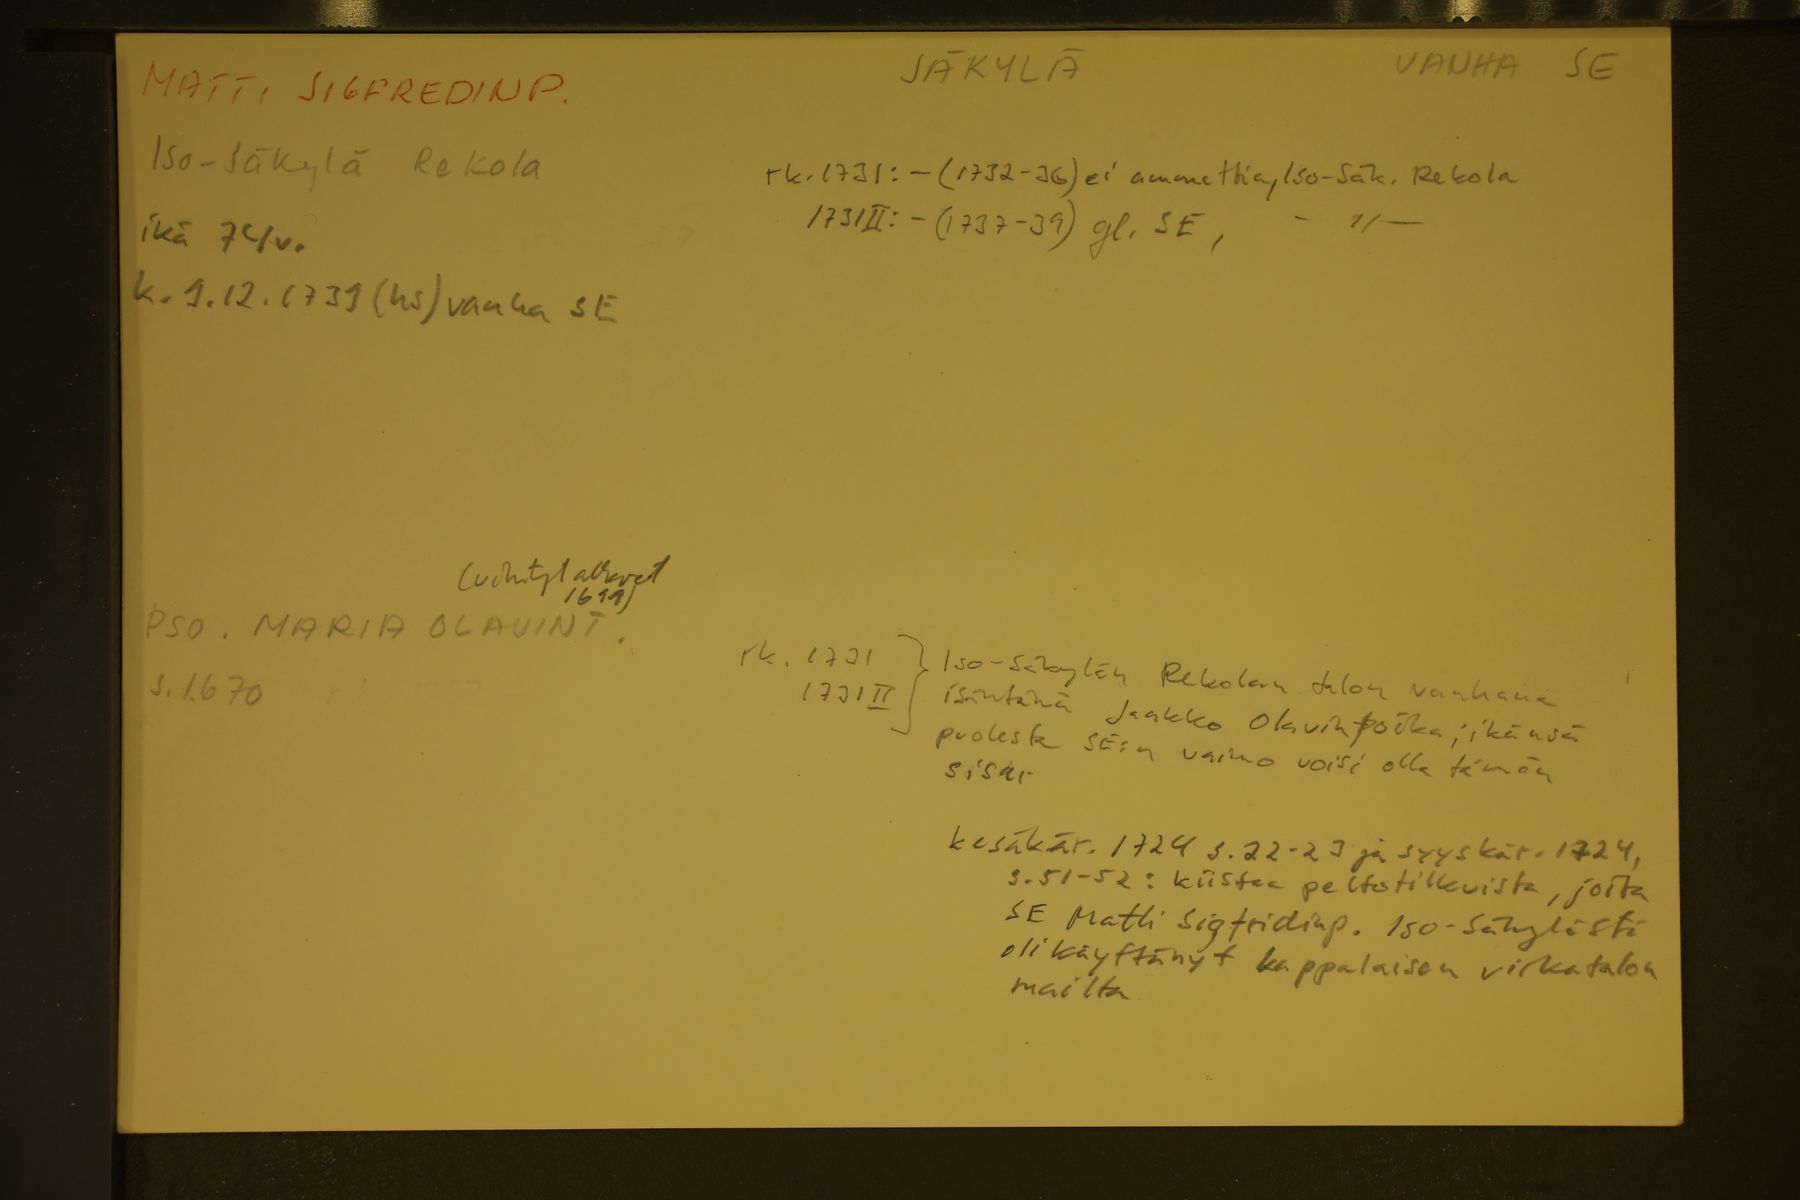 MATTI SIGFREDINP.
SÄKYLÄ
VANHA SE
Iso-Säkylä Rekola
rk. 1731: - (1732-36) ei ammattia, Iso-Säk. Rekola
1731 II: - (1737-39) gl. SE, - 〃 -
ikä 74 v.
k. 9.12.1739 (hs) vanha SE
(vihityt alkavat
1699)
PSO. MARIA OLAVINT.
s. 1670
rk. 1731
1731 II
Iso-Säkylän Rekolan talon vanhana
isäntänä Jaakko Olavinpoika; ikänsä
puolesta SE:n vaimo voisi olla tämän
sisar
kesäkär. 1724 s. 22-23 ja syyskär. 1724,
s. 51-52: kiistaa peltotilkuista, joita
SE Matti Sigfridinp. Iso-Säkylästä
oli käyttänyt kappalaisen virkatalon
mailta